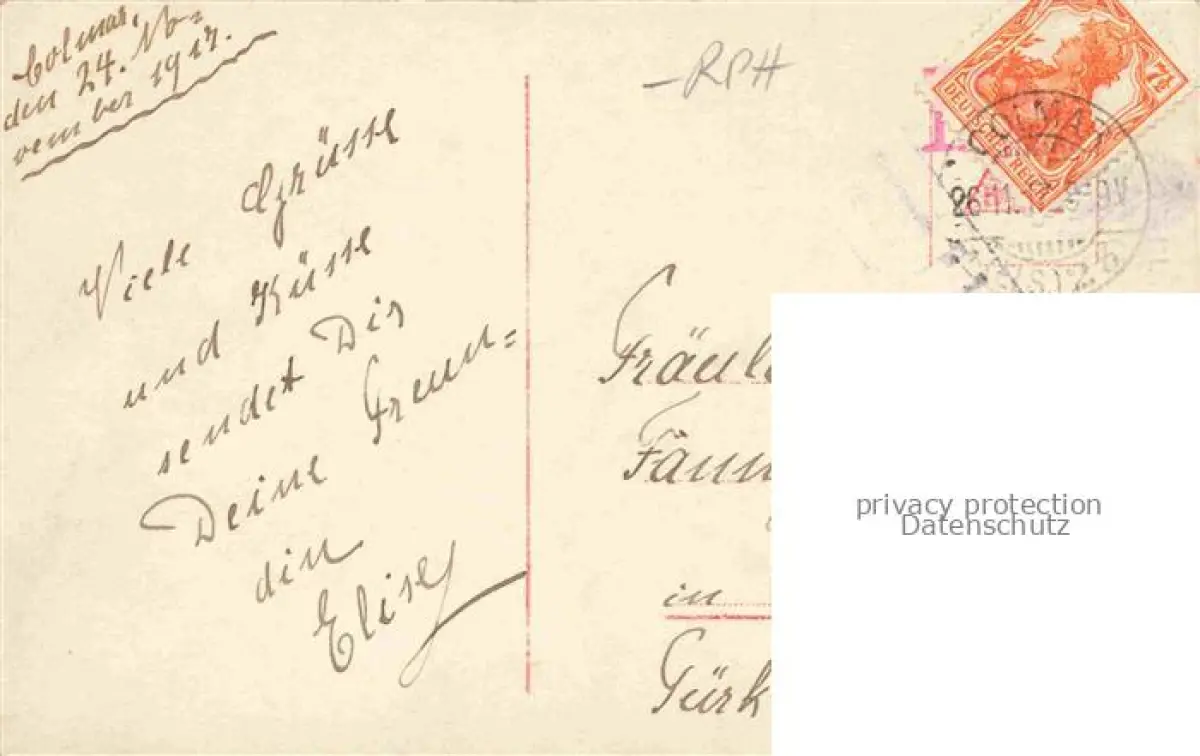 Colmar,
den 24. No=
vember 1917.
Viele Grüsse
und Küsse
sendet Dir
Deine Freun=
din
Elise
RPH
7½
DEUTSCHES REICH
COLMAR
26.11.
Fräul
Fänn
in
Türk
privacy protection
Datenschutz